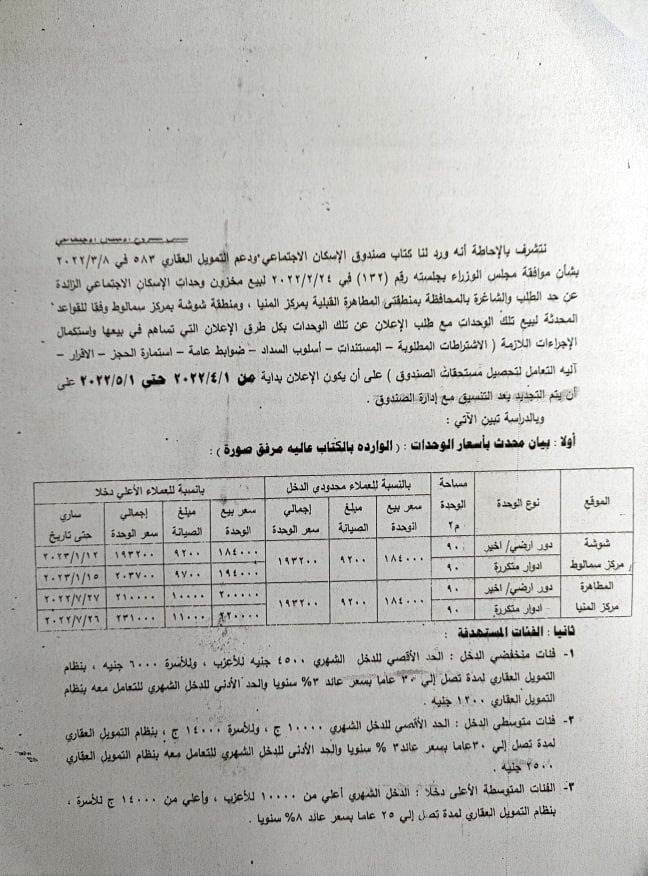 نتشرف بالإحاطة أنه ورد لنا كتاب صندوق الإسكان الاجتماعي ودعم التمويل العقاري ٥٨٣ في ٢٠٢٢/٣/٨
بشأن موافقة مجلس الوزراء بجلسته رقم (١٣٢) في ٢٠٢٢/٢/٢٤ لبيع مخزون وحدات الإسكان الاجتماعي الزائدة
عن حد الطلب والشاغرة بالمحافظة بمنطقتى المطاهرة القبلية بمركز المنيا ، ومنطقة شوشة بمركز سمالوط وفقا للقواعد
المحدثة لبيع تلك الوحدات مع طلب الإعلان عن تلك الوحدات بكل طرق الإعلان التي تساهم في بيعها واستكمال
الإجراءات اللازمة ( الاشتراطات المطلوبة – المستندات – أسلوب السداد – ضوابط عامة – استمارة الحجز – الاقرار –
آليه التعامل لتحصيل مستحقات الصندوق ) على أن يكون الإعلان بداية من ٢٠٢٢/٤/١ حتى ٢٠٢٢/٥/١ على
أن يتم التجديد بعد التنسيق مع إدارة الصندوق .
وبالدراسة تبين الآتي :
أولا : بيان محدث بأسعار الوحدات : ( الوارده بالكتاب عاليه مرفق صورة ) :
الموقع نوع الوحدة مساحة الوحدة م٢ بالنسبة للعملاء محدودي الدخل بالنسبة للعملاء الأعلي دخلا
سعر بيع الوحدة مبلغ الصيانة إجمالي سعر الوحدة سعر بيع الوحدة مبلغ الصيانة إجمالي سعر الوحدة ساري حتى تاريخ
شوشة مركز سمالوط دور ارضي/ اخير ٩٠ ١٨٤٠٠٠ ٩٢٠٠ ١٩٣٢٠٠ ١٨٤٠٠٠ ٩٢٠٠ ١٩٣٢٠٠ ٢٠٢٣/١/١٢
ادوار متكررة ٩٠ ١٩٤٠٠٠ ٩٧٠٠ ٢٠٣٧٠٠ ٢٠٢٣/١/١٥
المطاهرة مركز المنيا دور ارضي/ اخير ٩٠ ١٨٤٠٠٠ ٩٢٠٠ ١٩٣٢٠٠ ٢٠٠٠٠٠ ١٠٠٠٠ ٢١٠٠٠٠ ٢٠٢٢/٧/٢٧
ادوار متكررة ٩٠ ٢٢٠٠٠٠ ١١٠٠٠ ٢٣١٠٠٠ ٢٠٢٢/٧/٢٦
ثانيا : الفئات المستهدفة :
١- فئات منخفضي الدخل : الحد الأقصي للدخل الشهري ٤٥٠٠ جنيه للأعزب ، وللأسرة ٦٠٠٠ جنيه ، بنظام
التمويل العقاري لمدة تصل إلي ٣٠ عاما بسعر عائد ٣% سنويا والحد الأدنى للدخل الشهري للتعامل معه بنظام
التمويل العقاري ١٢٠٠ جنيه .
٢- فئات متوسطي الدخل : الحد الأقصي للدخل الشهري ١٠٠٠٠ ج ، وللأسرة ١٤٠٠٠ ج ، بنظام التمويل العقاري
لمدة تصل إلي ٣٠عاما بسعر عائد٣ % سنويا والحد الأدنى للدخل الشهري للتعامل معه بنظام التمويل العقاري
٢٥٠٠ جنيه .
٣- الفئات المتوسطة الأعلى دخلا : الدخل الشهري أعلي من ١٠٠٠٠ للأعزب ، وأعلي من ١٤٠٠٠ ج للأسرة ،
بنظام التمويل العقاري لمدة تصل إلي ٢٥ عاما بسعر عائد ٨% سنويا .